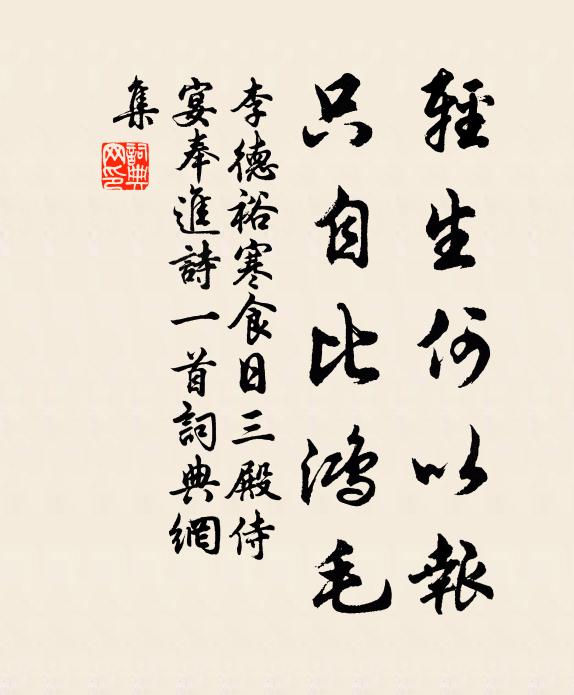 輕生何以報
只自比鴻毛
李德裕寒食日三殿侍
宴奉進詩一首詞典網
集
詞典
网印